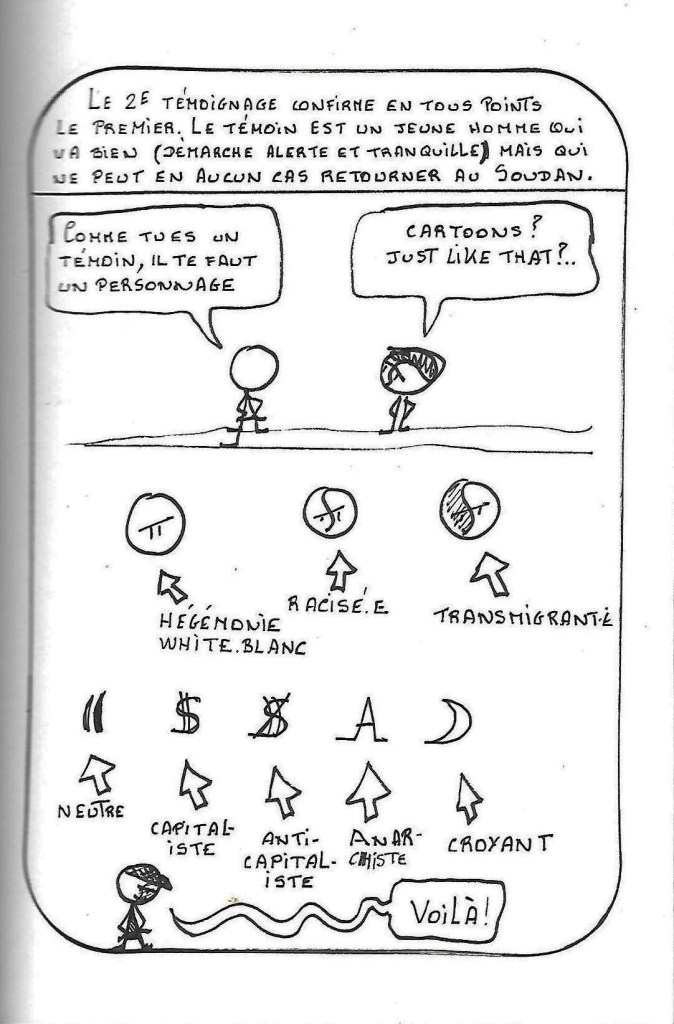 LE 2E TÉMOIGNAGE CONFIRME EN TOUS POINTS
LE PREMIER. LE TÉMOIN EST UN JEUNE HOMME QUI
VA BIEN (DÉMARCHE ALERTE ET TRANQUILLE) MAIS QUI
NE PEUT EN AUCUN CAS RETOURNER AU SOUDAN.
COMME TU ES UN
TÉMOIN, IL TE FAUT
UN PERSONNAGE
CARTOONS?
JUST LIKE THAT?..
HÉGÉMONIE
WHITE.BLANC
RACISÉ.E
TRANSMIGRANT.E
$
$
A
NEUTRE
CAPITAL-
ISTE
ANTI-
CAPITAL-
ISTE
ANAR-
CHISTE
CROYANT
VOILÀ!